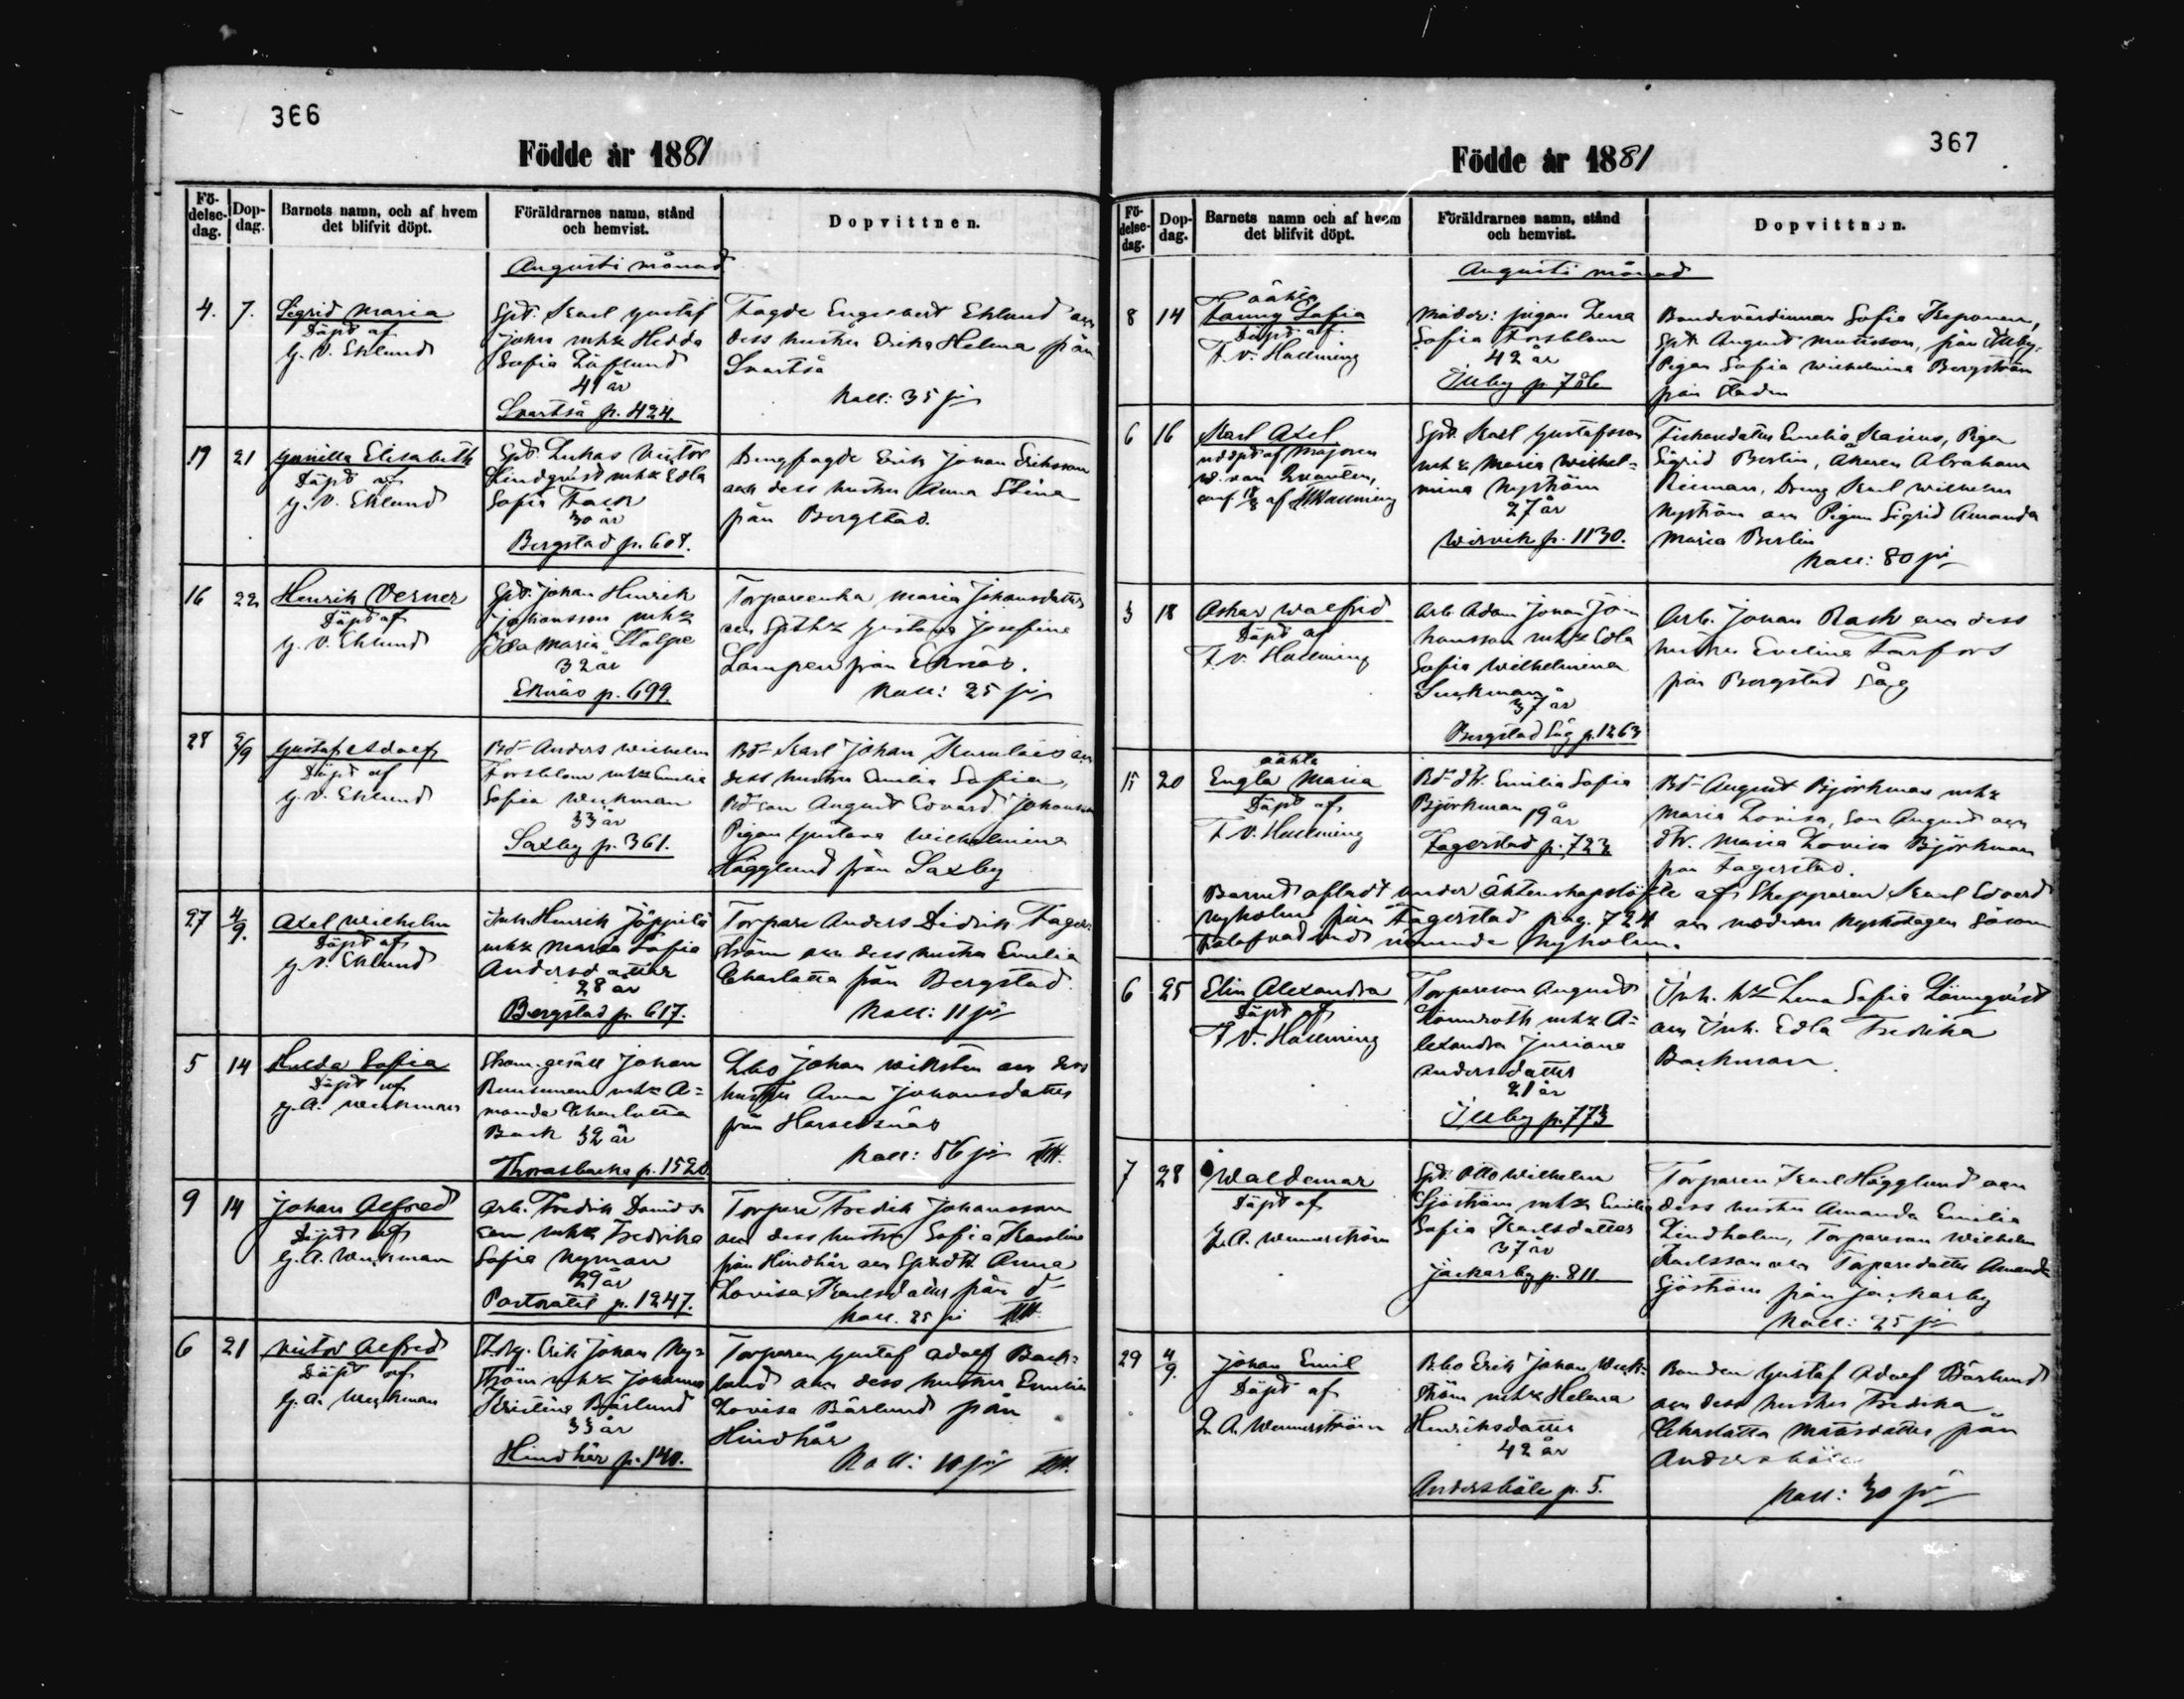 366
Födde år 1881
Fö-
delse-
dag.
Dop-
dag.
Barnets namn, och af hvem
det blifvit döpt.
Föräldrarnes namn, stånd
och hemvist.
Dopvittnen.
Augusti månad
4. 7.
Sigrid Maria
Döpt af
G. V. Eklund
Spt. Karl Gustaf
Johns mhk Hedda
Sofia Löflund
41 år
Svartså p. 424.
Fogde Engelbert Eklund
dess hustru Erika Helena från
Svartså
Koll: 35 pi
19 21
Gunilla Elisabeth
Döpt af
G. V. Eklund
Spt. Lukas Victor
Lindqvist mhk Edla
Sofia Fask
30 år
Bergstad p. 608.
Erik Johan Eriksson
och dess hustru Anna Stina
från Bergstad.
16 22
Henrik Verner
Döpt af
G. V. Eklund
Spt. Johan Henrik
Johansson mhk
Ida Maria Stolpe
32 år
Eknäs p. 699.
Torpareenka Maria Johansdotter
och Gustava Josefina
Lampen från Eknäs.
Koll: 25 pi
28 2/9
Gustaf Adolf
Döpt af
G. V. Eklund
Bd Anders Wilhelm
Forsblom mhk Emilia
Sofia Weckman
33 år
Saxby p. 361.
Bd Karl Johan
dess hustru Emilia Sofia,
Bd son August Edvard Johansson
Pigan Gustava Wilhelmina
Hägglund från Saxby
27 4/9.
Axel Wilhelm
Döpt af
G. V. Eklund
Inh. Henrik Jöppilä
mhk Maria Sofia
Andersdotter
28 år
Bergstad p. 617.
Torpare Anders Didrik Fager-
ström och dess hustru Emilia
Charlotta från Bergstad.
Koll: 11 pi
5 14
Hulda Sofia
Döpt af
G. A. Weckman
gesäll Johan
mhk A-
manda Charlotta
Back 32 år
Thorasbacka p. 1520
Lbo Johan Wiksten och dess
hustru Anna Johansdotter
från Harvelsnäs
Koll: 56 pi
9 14
Johan Alfred
Döpt af
G. A. Weckman
Arb. Fredrik Davids-
son mhk Fredrika
Sofia Nyman
29 år
p. 1247.
Torpare Fredrik Johansson
och dess hustru Sofia Karolina
från Hindhår och Anna
Lovisa Karlsdotter från d:o
Koll. 25 pi
6 21
Victor Alfred
Döpt af
G. A. Weckman
Erik Johan Ny-
ström mhk Johanna
Kristina Bärlund
33 år
Hindhår p. 140.
Torparen Gustaf Adolf Back-
lund och dess hustru Emilia
Lovisa Bärlund från
Hindhår
Koll: 10 pi
367
Födde år 1881
Fö-
delse-
dag.
Dop-
dag.
Barnets namn och af hvem
det blifvit döpt.
Föräldrarnes namn, stånd
och hemvist.
Dopvittnen.
Augusti månad
8 14
oäkta
Fanny Sofia
Döpt af
F. V. Hallming
Moder: pigan Lena
Sofia Forsblom
42 år
Illby p. 786
Bondevärdinnan Sofia
Spt. August Mattsson, från Illby,
Pigan Sofia Wilhelmina Bergström
från Staden
6 16
Karl Axel
nöddöpt af Majoren
W. von Qvanten,
af Hallming
Spt. Karl Gustafsson
mhk Maria Wilhel-
mina Nyström
27 år
Wirvik p. 1130.
Fiskaredotter Emelia Pigan
Sigrid Berlin, Abraham
Dreng Karl Wilhelm
Nyström och Pigan Sigrid Amanda
Maria Berlin
Koll: 80 pi
3 18
Oskar Walfrid
Döpt af
F. V. Hallming
Arb. Adam Johan Jo-
hansson mhk Edla
Sofia Wilhelmina
37 år
Bergstad Såg p. 1263
Arb. Johan Rask och dess
hustru Evelina Forsfors
från Bergstad Såg
15 20
oäkta
Engla Maria
Döpt af
F. V. Hallming
Bd dtr. Emilia Sofia
Björkman 19 år
Fagerstad p. 723
Bd August Björkman mhk
Maria Lovisa, Son August och
dtr. Maria Lovisa Björkman
från Fagerstad.
Barnet afladt under äktenskapslöfte af Skepparen Karl Edvard
Nyholm från Fagerstad pag. 724 och modren kyrkotagen såsom
trolofvad med nämnde Nyholm.
6 25
Elin Alexandra
Döpt af
F. V. Hallming
Torpareson August
Lönnroth mhk A-
lexandra Juliana
Andersdotter
21 år
Illby p. 773
Inh. hk Lena Sofia Lönnqvist
och Inh. Edla Fredrika
Backman.
7 28
Waldemar
Döpt af
L. A. Wennerström
Spt. Otto Wilhelm
Sjöström mhk Emilia
Sofia Karlsdotter
37 år
Jackarby p. 811.
Torparen Karl Hägglund och
dess hustru Amanda Emilia
Lindholm, Torpareson Wilhelm
Karlsson och Torparedotter Amanda
Sjöström från Jackarby
Koll: 25 pi
29 4/9.
Johan Emil
Döpt af
L. A. Wennerström
Bbo Erik Johan Weck-
ström mhk Helena
Henriksdotter
42 år
Andersböle p. 5.
Bonden Gustaf Adolf Bärlund
och dess hustru Fredrika
Charlotta Mattsdotter från
Andersböle
Koll: 30 pi